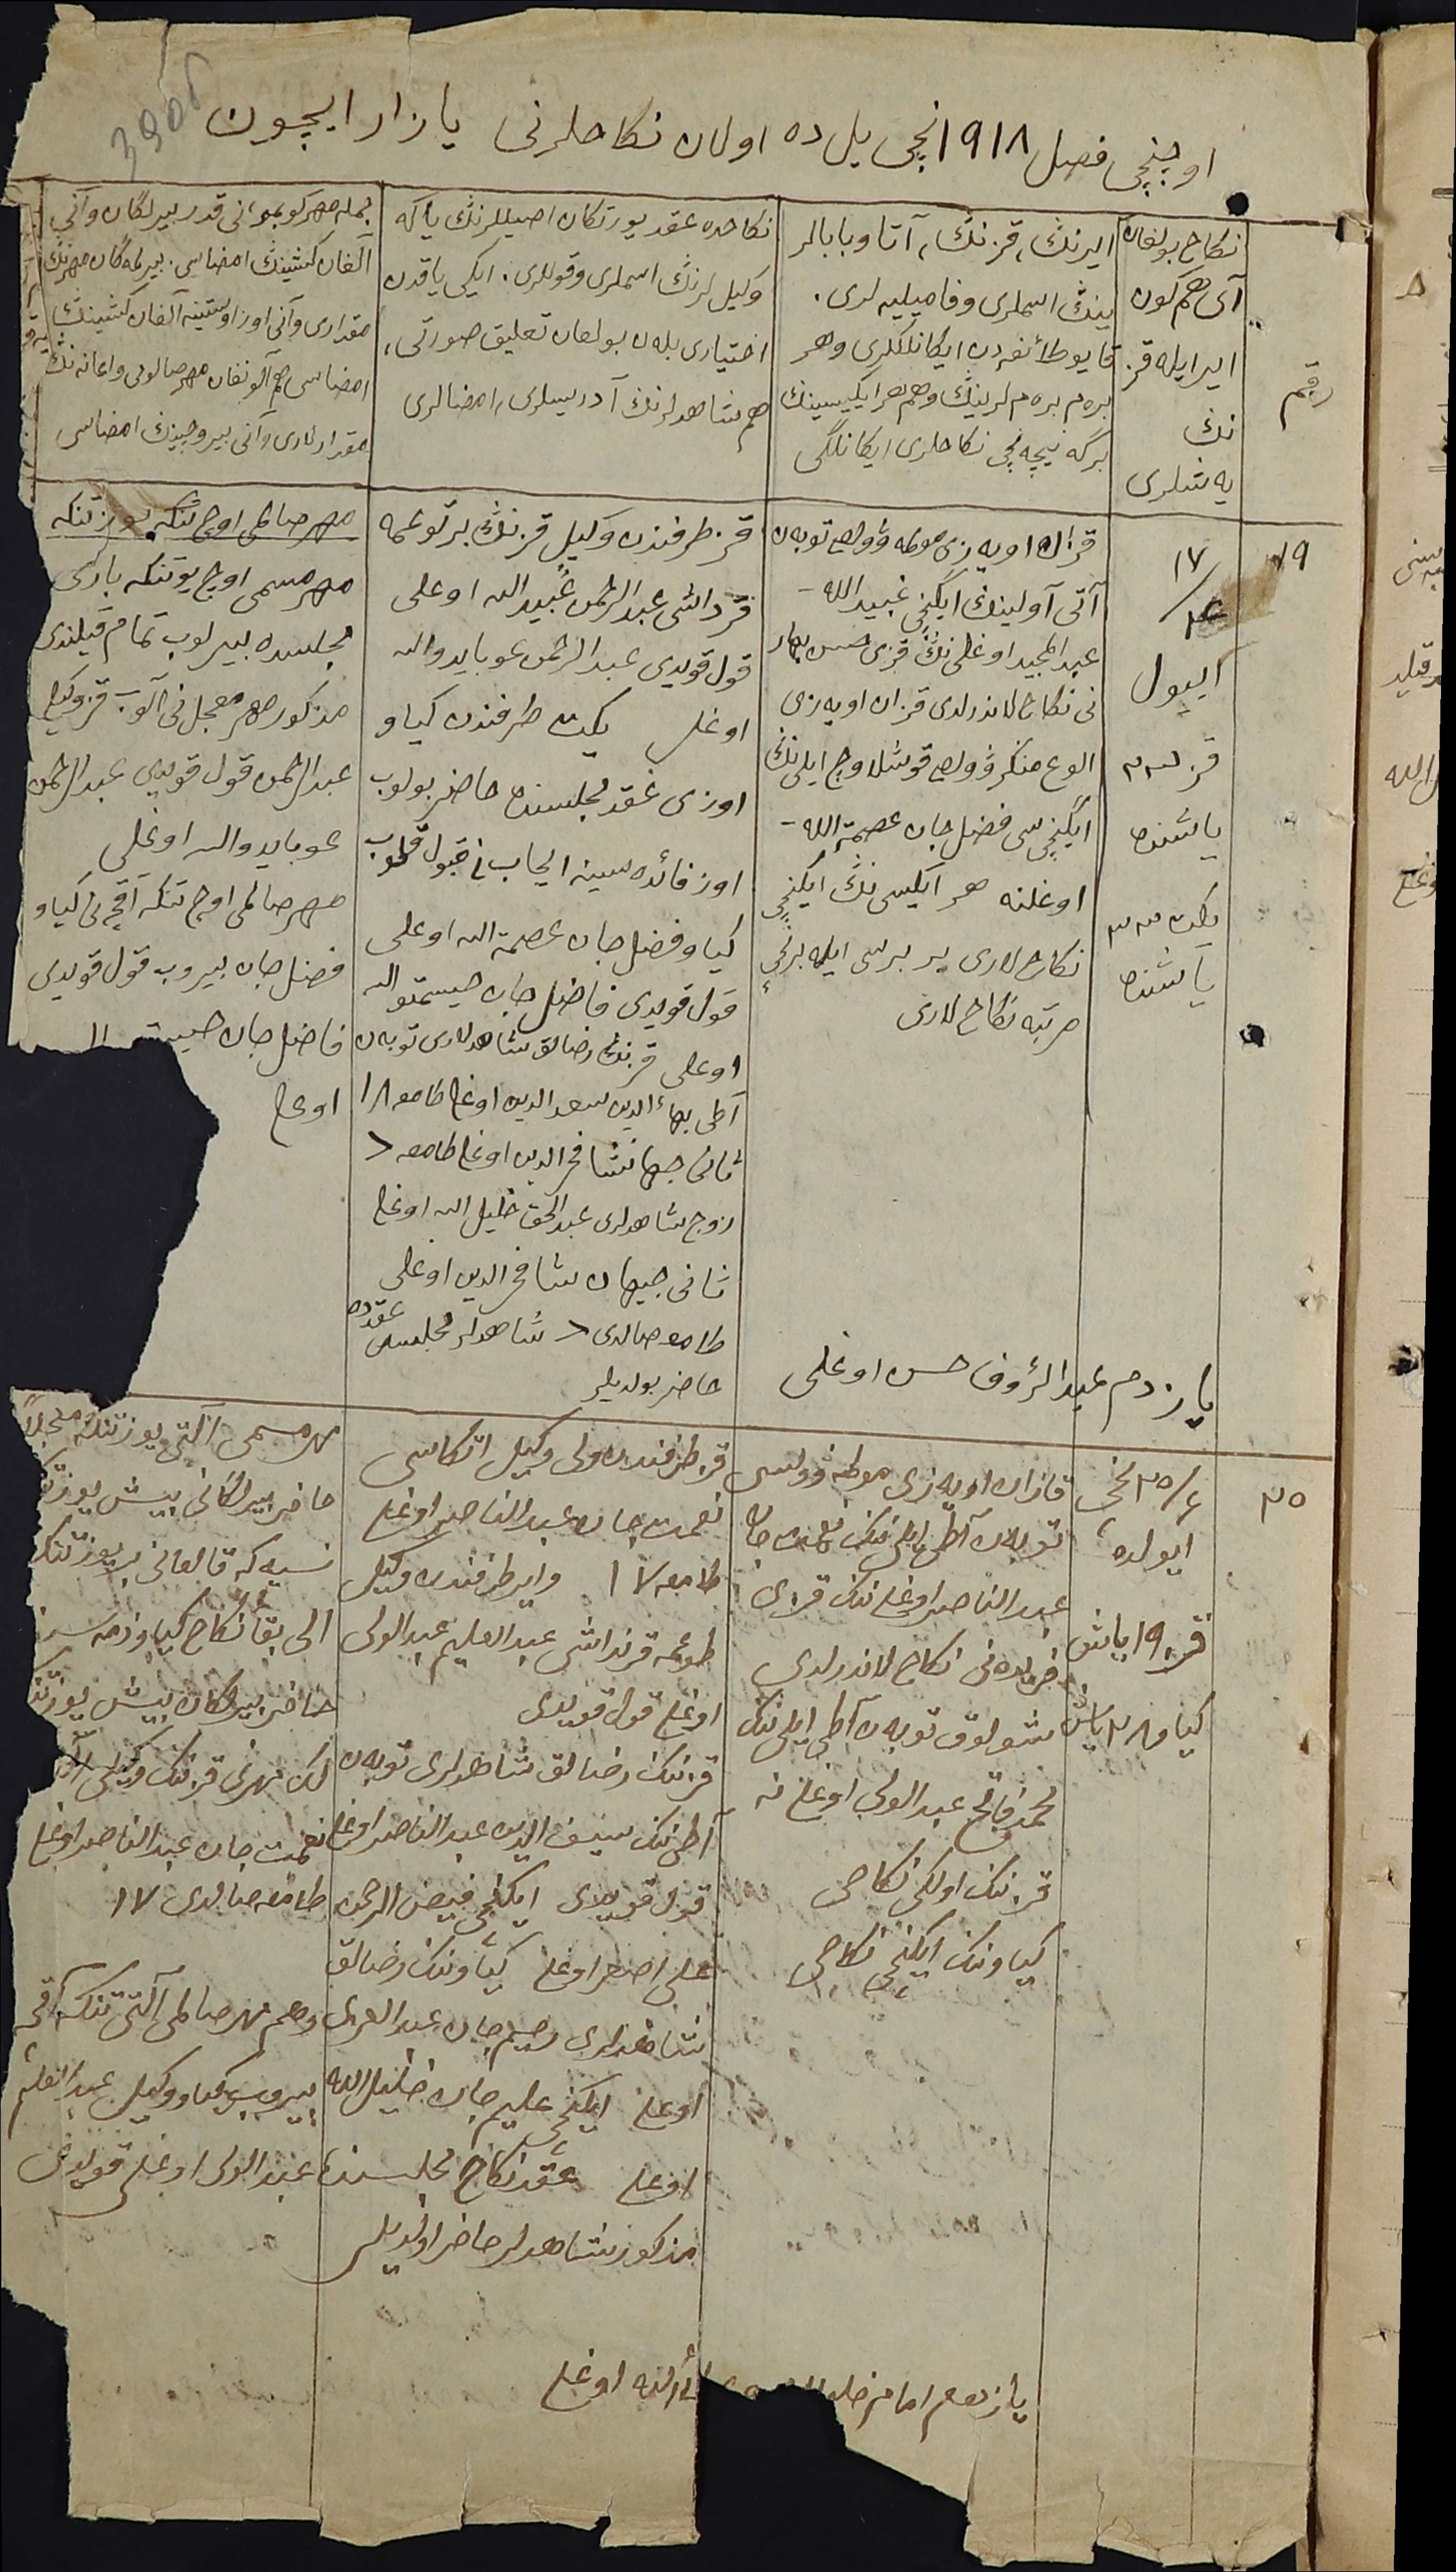 3906
اوچنچی فصل ۱۹۱۸ نچی یل ده اولان نکاحلرنی یازار ایچون
رقم
نکاح بولغان
آی هم کون
ایر ایله قز
نڭ
یه شلری
ایرنڭ، قزنڭ، آتا و بابالر
ینڭ اسملری و فامیلیه لری.
قایو طائفه دن ایکانلکلری وهر
بره م بره م لرینڭ وهم هر ایکیسینڭ
برگه نیچه نچی نکاحلری ایکانلگی
نکاحده عقد یورتکان اصیللرنڭ یا که
وکیل لرنڭ اسملری و قوللری. ایکی یاقدن
اختیاری بله ن بولغان تعلیق صورتی،
هم شاهدلرنڭ آدریسلری، امضالری
جمله مهر کوبمو، انی قدر بیرلگان و آنی
آلغان کشینڭ امضاسی. بیرلمه گان مهرنڭ
مقداری و آنی اوز اوستینه آلغان کشینڭ
امضاسی هم آلونغان مهر صالومی و اعانه نڭ
مقدارلاری و آنی بیروچینڭ امضاسی
۱۹
۱۷
اییول
قز ۲۳
یاشنده
یکت ۳۳
یاشنده
قزان اویه زی موطه وولصی توبه ن
آتی آولینڭ ایکنچی عبیدالله
عبدالمجید اوغلی نڭ قزی حسن بهار
نی نکاح لاندرلدی قزان اویه زی
الوغ منگر وولصی قوشلاوچ ایلی نڭ
ایکنچی سی فضل جان عصمة الله
اوغلنه هر ایکیسی نڭ ایکنچی
نکاح لاری بر برسی ایله برنچی
مرتبه نکاح لاری
قز طرفندن وکیل قزنڭ بر توغمه
قرداشی عبدالرحمن عبیدالله اوغلی
قول قویدی عبدالرحمن عوبایدوالله
اوغلی یکت طرفندن کیاو
اوزی عقد مجلسنده حاضر بولوب
اوز فائده سینه ایجاب نی قبول قلوب
کیاو فضل جان عصمة الله اوغلی
قول قویدی فاضل جان حیسمتوالله
اوغلی قزنڭ رضالق شاهدلاری توبه ن
آطی بهاءالدین سعدالدین اوغلی طامغه ۱۸
ثانی جهانشا فخرالدین اوغلی طامغه >
زوج شاهدلری عبدالحق خلیل الله اوغلی
ثانی جیهان شا فخرالدین اوغلی
طامغه صالدی > شاهدلر مجلس عقدده
حاضر بولدیلر
مهر صالمی اوچ تنکه یوز تنکه
مهر مسمی اوچ یوز تنکه باری
مجلسده بیرلوب تمام قیلندی
مذکور مهر معجل نی آلوب قز وکیلی
عبدالرحمن قول قویدی عبدالرحمن
عوبایدوالله اوغلی
مهر صالمی اوچ تنکه آقچه نی کیاو
فضل جان بیروب قول قویدی
فاضل جان
اوغلی
یازدم عبدالرؤف حسن اوغلی
۲۰
۲۵/٤ نچی
ایولده
قز ۱۹ یاش
کیاو ۲۸ یاش
قازان اویه زی موطه وولسی
توبه ن آطی ایلی نڭ نعمت جان
عبدالناصر اوغلی نڭ قزی
فریده نی نکاح لاندرلدی
شولوق توبه ن آطی ایلی نڭ
محمد فاتح عبدالولی اوغلی نه
قزنڭ اولکی نکاحی
کیاونڭ ایکنچی نکاحی
قز طرفندن ولی وکیل اتکاسی
نعمت جان عبدالناصر اوغلی
طامغه ۱۷ وایر طرفندن وکیل
طوغمه قرنداشی عبدالعلیم عبدالولی
اوغلی قول قویدی
قزنڭ رضالق شاهدلری توبه ن
آطی نڭ سیف الدین عبدالناصر اوغلی
قول قویدی ایکنچی فیض الرحمن
علی اصغر اوغلی کیاونڭ رضالق
شاهدلری رحیم جان عبدالعزی
اوغلی ایکنچی علیم جان خلیل الله
اوغلی عقد نکاح مجلسنده
مذکور شاهدلر حاضر اولدیلر
مهر مسمی آلتی یوز تنکه معجلا
حاضر بیرلگانی بیش یوز تنکه
نسیه که قالغانی بر یوز تنکه
الی بقاء نکاح کیاو ذمه سنده
حاضر بیرلگان بیش یوز تنکه
لک مهرنی قزنڭ وکیلی
نعمت جان عبدالناصر اوغلی
طامغه صالدی ۱۷
وهم مهر صالمی آلتی تنکه آقچه
بیروب کیاو وکیلی عبدالعلیم
عبدالولی اوغلی قول قویدی
یازدم امام اوغلی